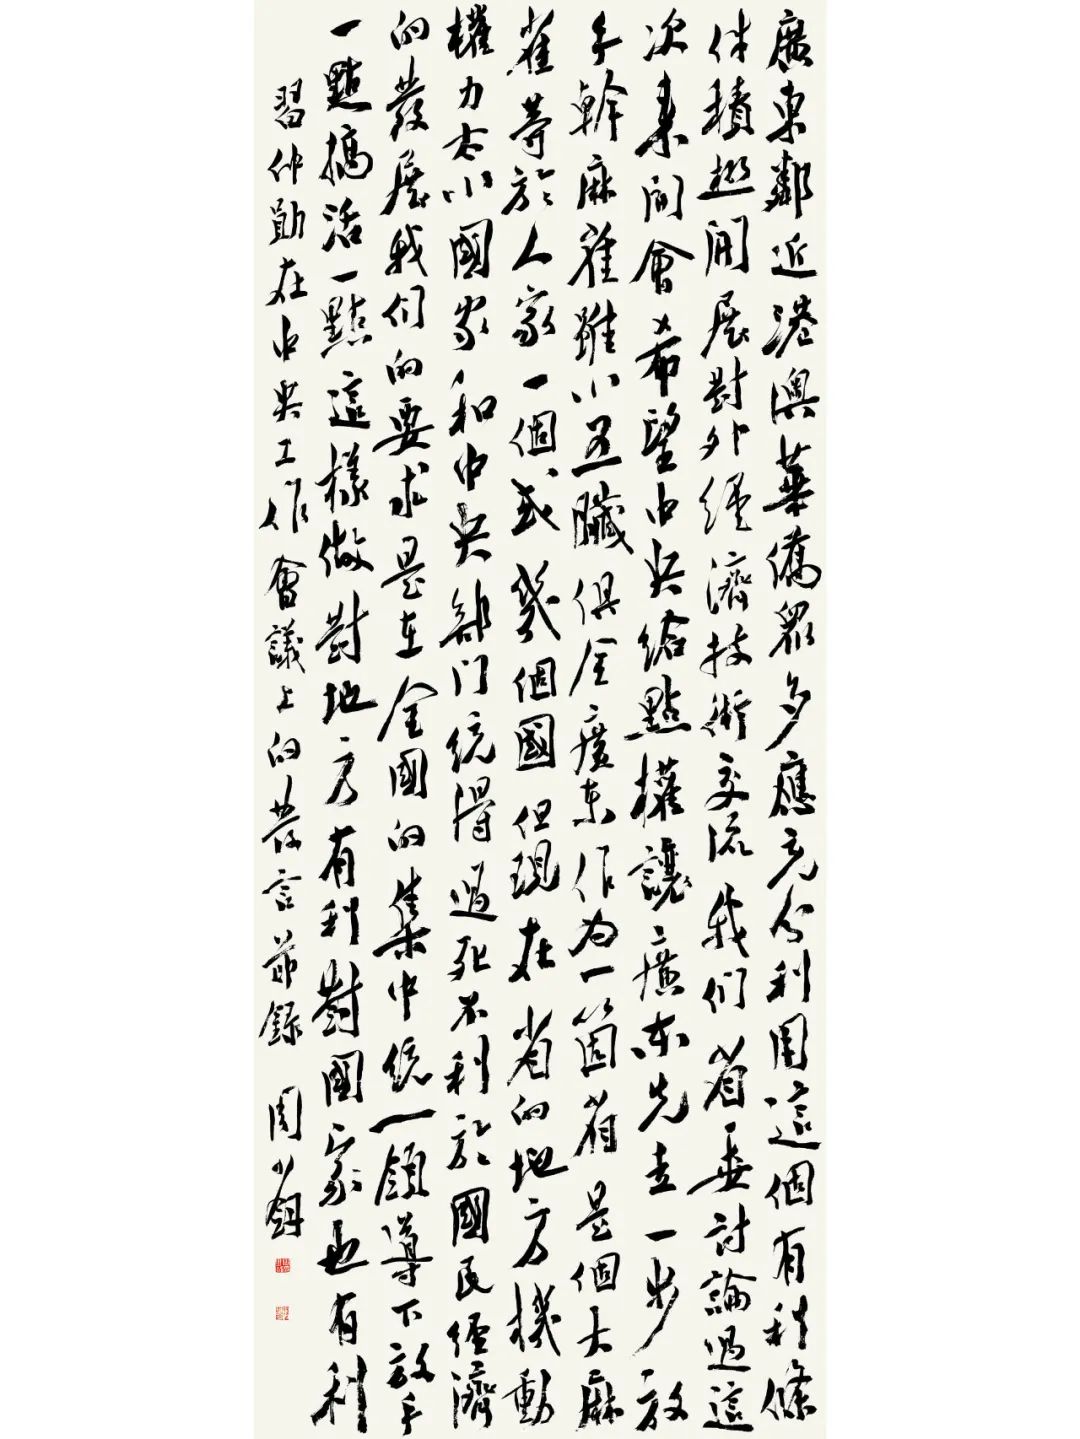 廣東鄰近港澳華僑眾多應充分利用這個有利條
件積極開展對外經濟技術交流我们省委討論過這
次來開會希望中央給點權讓廣東先走一步放
手幹麻雀雖小五臟俱全廣東作为一箇省是個大麻
雀等於人家一個或幾個國但現在省的地方機動
權力太小國家和中央部门統得過死不利於國民經濟
的發展我们的要求是在全國的集中統一領導下放手
一點搞活一點這樣做對地方有利對國家也有利
習仲勛在中央工作會議上的發言節錄 周少